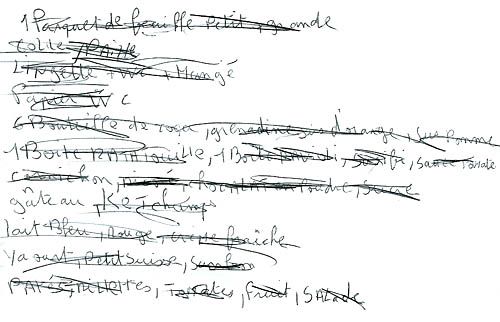 1 Parquet de feuille Petit, grande
Colle, Paille
Lingette + WC + Mangé
Papier W C
6 Bouteille de coca, grenadine, jus d'orange, jus Pomme
1 Boite RATATOUILLE, 1 Boite, Sauce tomate
cornichon, chocolat en Poudre, Sucre
gâteau, Ketchup
lait Bleu, Rouge, crème fraiche
Yaourt, Petit Suisse, Jambon
PATÉS, RILLETTES, Tomates, fruit, SALADE